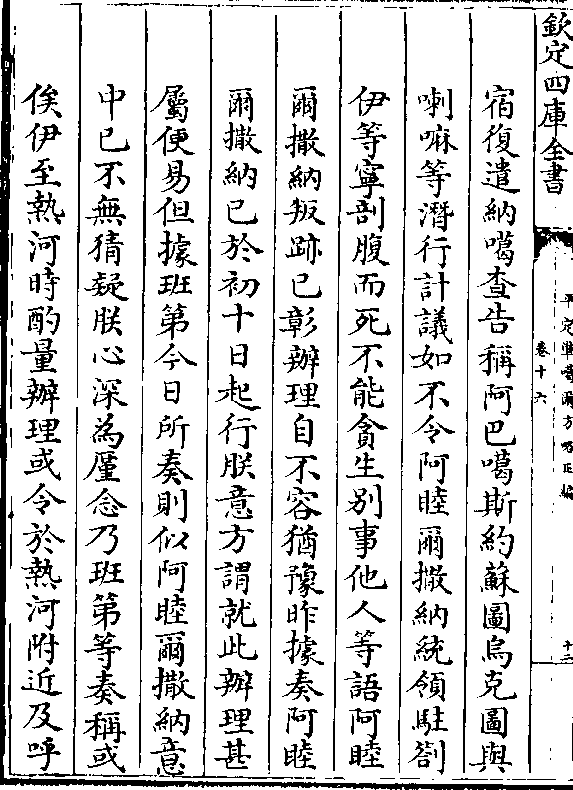 欽定四庫全書
平定準噶爾方略正編
卷十六
十二
宿復遣納噶查告稱阿巴噶斯約蘇圖烏克圖與
喇嘛等潛行計議如不令阿睦爾撒納統領駐劄
伊等寧剖腹而死不能貪生別事他人等語阿睦
爾撒納叛跡已彰辦理自不容猶豫昨據奏阿睦
爾撒納已於初十日起行朕意方謂就此辦理甚
屬便易但據班第今日所奏則似阿睦爾撒納意
中已不無猜疑朕心深為廑念乃班第等奏稱或
俟伊至熱河時酌量辦理或令於熱河附近及呼